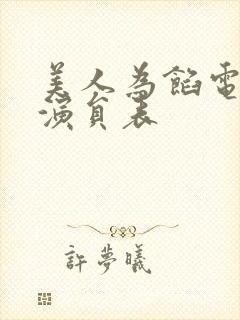 美人為餡電
演員表
許夢曦